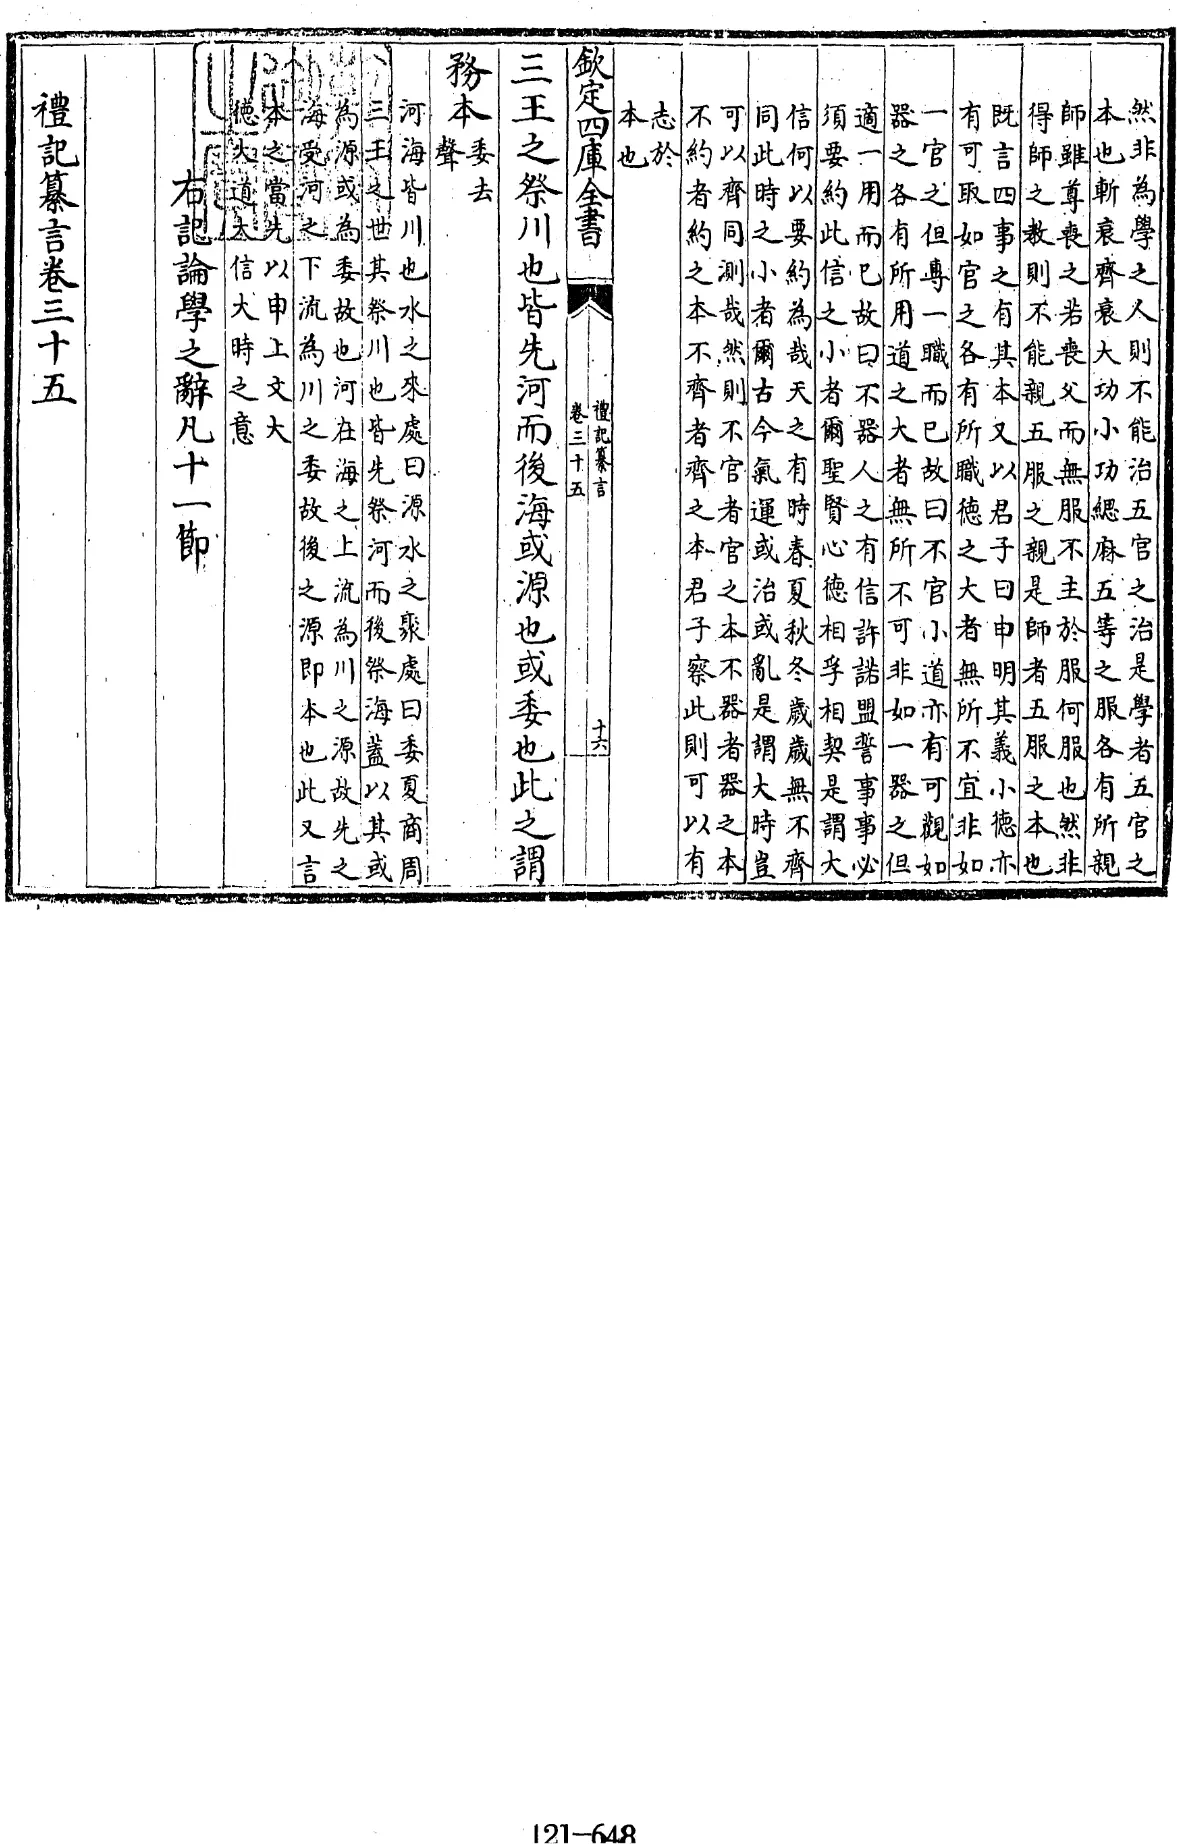 然非為學之人則不能治五官之治是學者五官之
本也斬衰齊衰大功小功緦麻五等之服各有所親
師雖尊喪之若喪父而無服不主於服何服也然非
得師之教則不能親五服之親是師者五服之本也
既言四事之有其本又以君子曰申明其義小徳亦
有可取如官之各有所職徳之大者無所不宜非如
一官之但專一職而已故曰不官小道亦有可觀如
器之各有所用道之大者無所不可非如一器之但
適一用而已故曰不器人之有信許諾盟誓事事必
須要約此信之小者爾聖賢心徳相孚相契是謂大
信何以要約為哉天之有時春夏秋冬歲歲無不齊
同此時之小者爾古今氣運或治或亂是謂大時豈
可以齊同測哉然則不官者官之本不器者器之本
不約者約之本不齊者齊之本君子察此則可以有
志於
本也
欽定四庫全書
禮記纂言
卷三十五
十六
三王之祭川也皆先河而後海或源也或委也此之謂
務本
委去
聲
河海皆川也水之來處曰源水之聚處曰委夏商周
三王之世其祭川也皆先祭河而後祭海蓋以其或
為源或為委故也河在海之上流為川之源故先之
海受河之下流為川之委故後之源即本也此又言
本之當先以申上文大
徳大道大信大時之意
右記論學之辭凡十一節
禮記纂言卷三十五
121-648